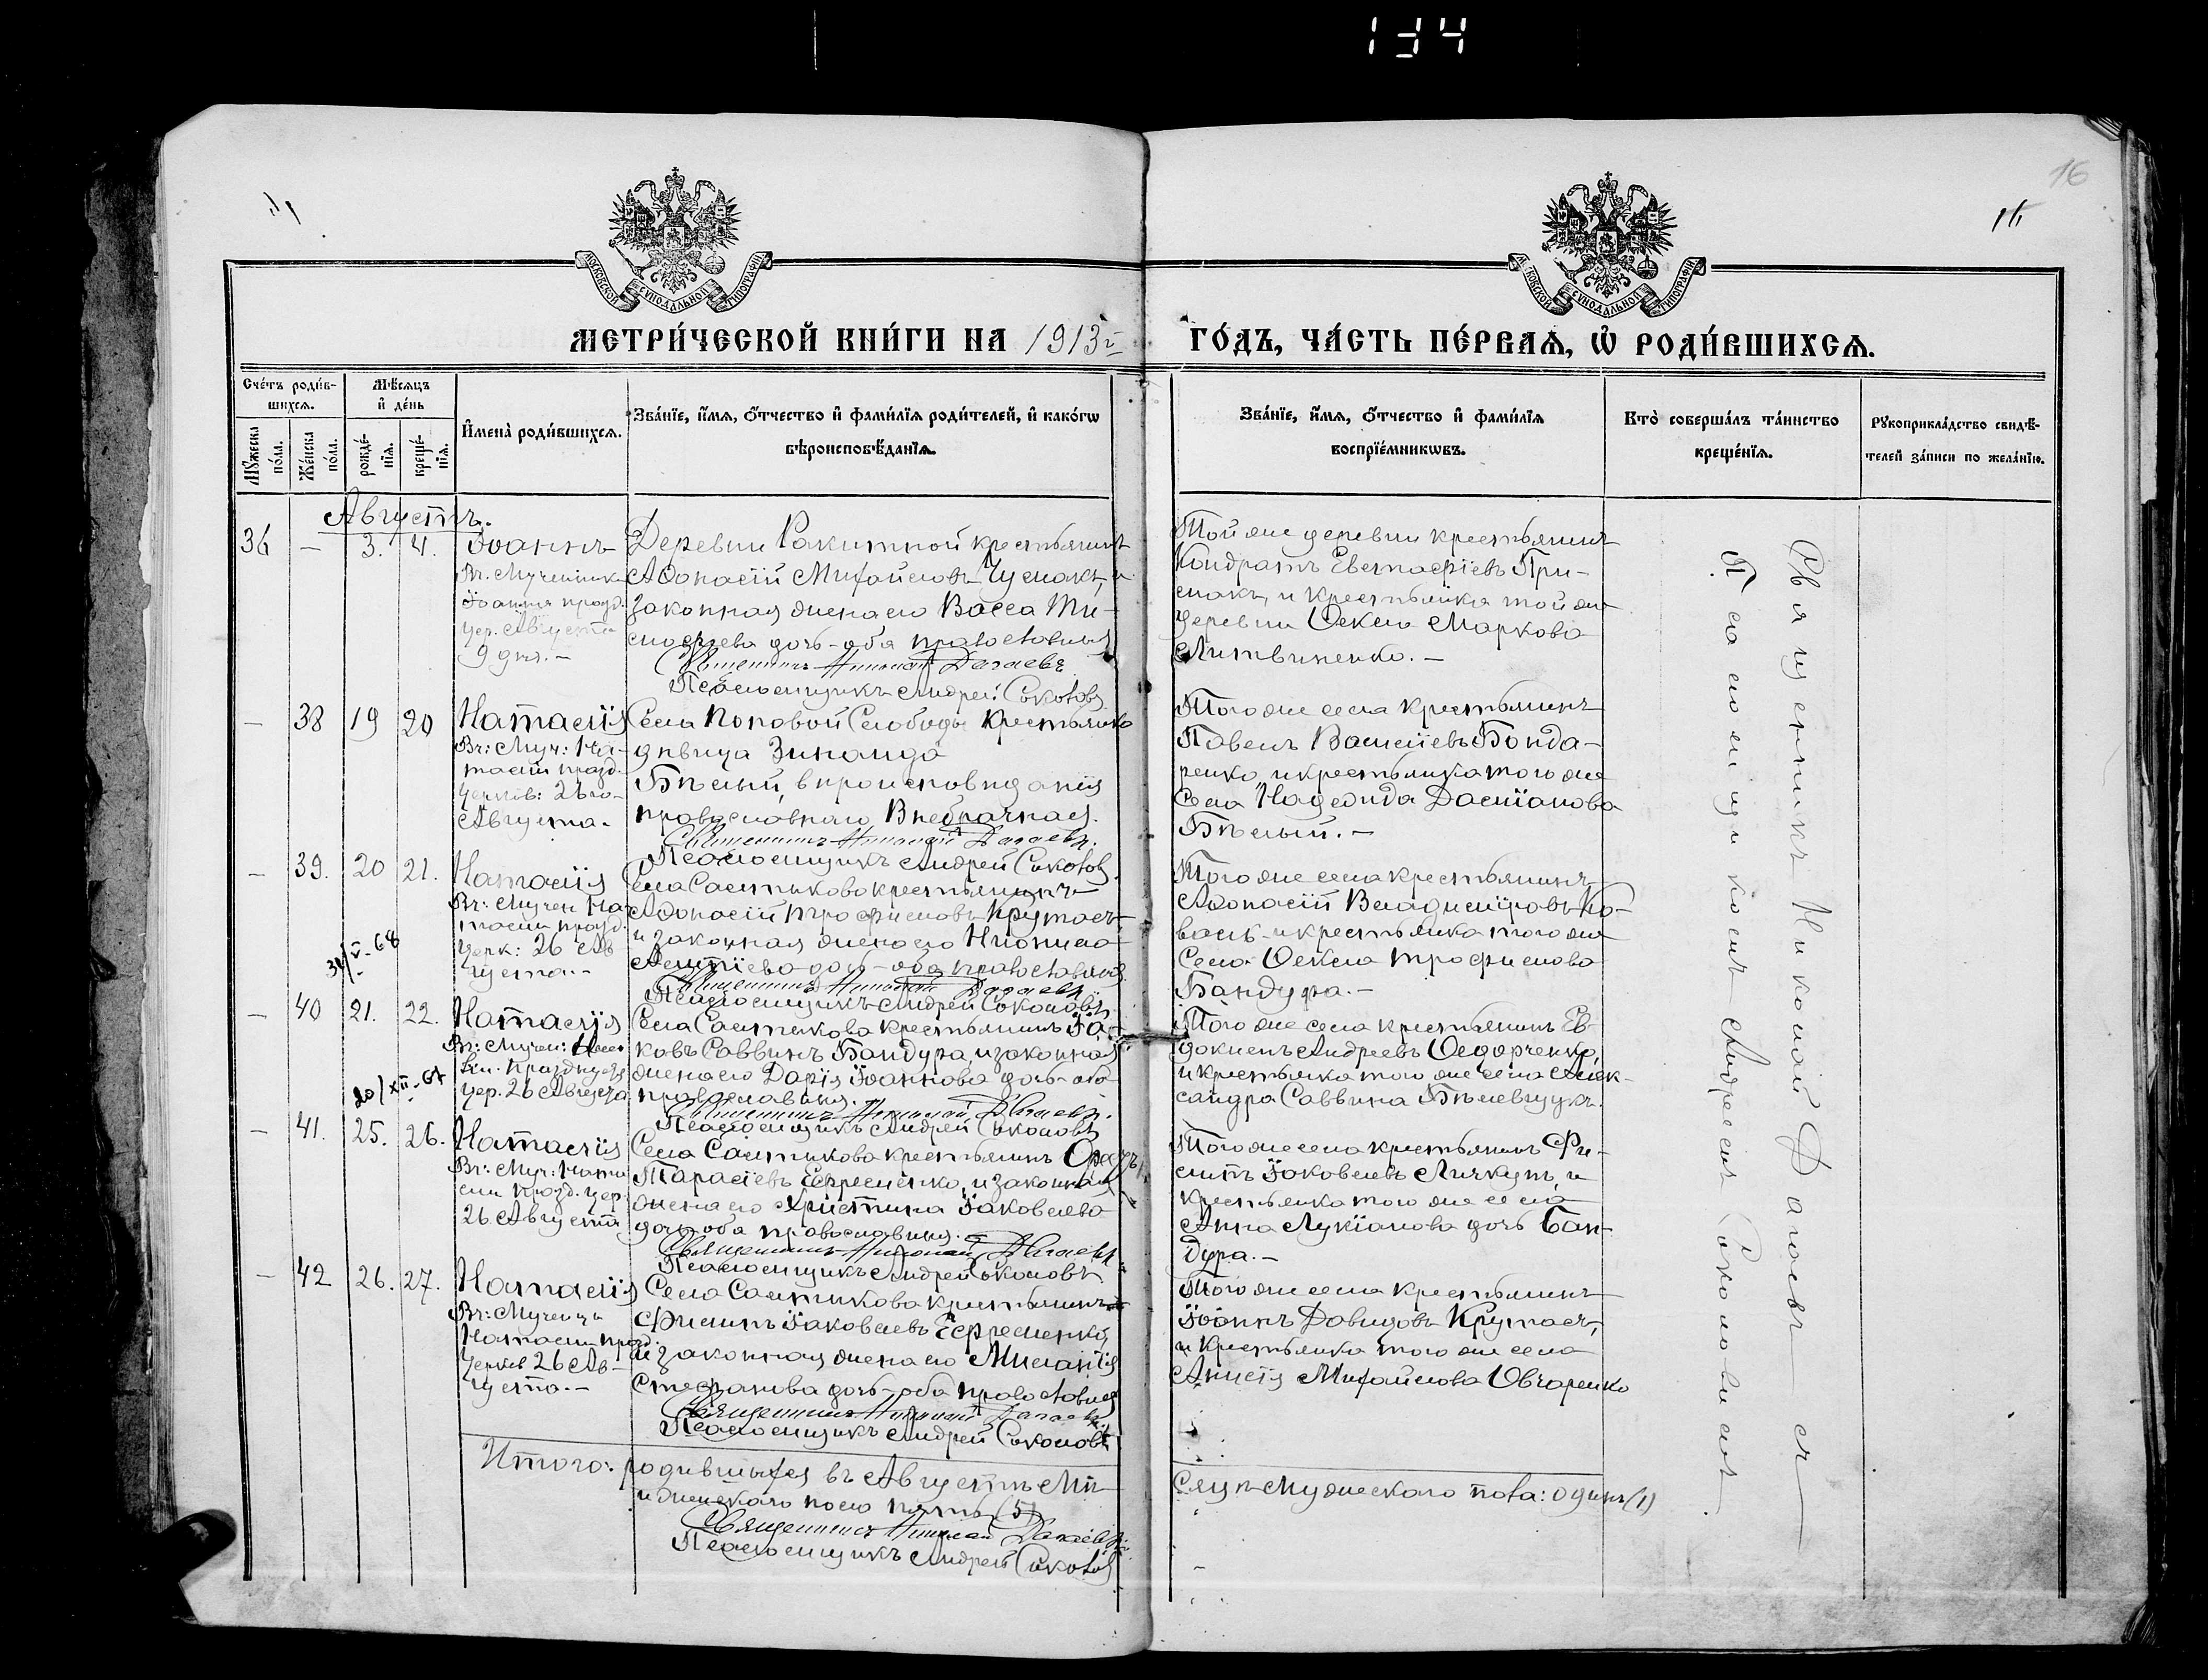 134
16
16
МОСКОВСКОЙ СѴНОДАЛЬНОЙ ТИПОГРАФІИ
МОСКОВСКОЙ СѴНОДАЛЬНОЙ ТИПОГРАФІИ
МЕТРИ́ЧЕСКОЙ КНИ́ГИ НА 1913 г. ГО́ДЪ, ЧА́СТЬ ПЕ́РВАѦ, Ѡ҆ РОДИ́ВШИХСѦ.
Сче́тъ роди́в-
шихсѧ.
Мѣ́сѧцъ
и҆ де́нь
Мꙋ́жеска по́ла.
Же́нска по́ла.
рожде́-
нїѧ.
креще́-
нїѧ.
И҆мена̀ роди́вшихсѧ.
Зва́нїе, и҆́мѧ, ѻ҆́тчество и҆ фами́лїѧ роди́телей, и҆ како́гѡ
вѣроисповѣ́данїѧ.
Зва́нїе, и҆́мѧ, ѻ҆́тчество и҆ фами́лїѧ
воспрїе́мникѡвъ.
Кто̀ соверша́лъ та́инство
креще́нїѧ.
Рꙋкоприкла́дство свидѣ́-
телей за́писи по жела́нїю.
Августъ.
36 — 3. 4. Іоаннъ
Вл. Мученика
Іоанна празд.
Цер. Августа
9 дня. —
Деревни Ракитной крестьянинъ
Аѳонасій Михайловъ Чумакъ, и
законная жена его Васса Ти-
моѳеева дочь - оба православныя
Священникъ Николай Дагаевъ
Псаломщикъ Андрей Соколовъ
Той же деревни крестьянинъ
Кондратъ Евстафіевъ При-
макъ, и крестьянка той же
деревни Ѳекла Маркова
Литвиненко. —
— 38 19 20 Наталія
Вл: Муч: На-
таліи празд.
Церков: 26 го
Августа.
Села Поповой Слободы крестьянка
девица Зинаида
Бѣлый, вѣроисповѣданія
православнаго Внебрачная.
Священникъ Николай Дагаевъ.
Псаломщикъ Андрей Соколовъ.
Того же села крестьянинъ
Павелъ Василіевъ Бонда-
ренко, и крестьянка того же
Села Надежда Даміанова
Бѣлый. —
— 39. 20 21. Наталія
Вл: Мучен На-
таліи празд.
Церк: 26 Ав
густа. —
31/V-68
Села Салтыкова крестьянинъ
Аѳонасій Трофимовъ Крутасъ
и законная жена его Неонила
Леонтіева дочь - оба православныя.
Священникъ Николай Дагаевъ.
Псаломщикъ Андрей Соколовъ
Того же села крестьянинъ
Аѳонасій Владиміровъ Ко-
валь и крестьянка того же
Села Ѳекла Трофимова
Бандура. —
— 40 21. 22. Наталія
Празднуетъ
Цер. 26 Августа
20/XII-67
Села Салтыкова крестьянинъ Іа-
ковъ Саввинъ Бандура, и законная
жена его Дарія Іоаннова дочь - оба
православныя.
Священникъ Николай Дагаевъ.
Псаломщикъ Андрей Соколовъ
Того же села крестьянинъ Ев-
докимъ Андреевъ Ѳедорченко,
и крестьянка того же села Алек-
сандра Саввина Бѣлевцува.
— 41. 25. 26. Наталія
Вл: Муч: Ната
ліи празд. цер.
26 Августа
Села Салтыкова крестьянинъ
Тарасіевъ Ефременко, и законная
жена его Христина Іаковлева
дочь оба православныя.
Священникъ Николай Дагаевъ
Псаломщикъ Андрей Соколовъ.
Того же села крестьянинъ Фи-
липъ Іаковлевъ Личкунъ, и
крестьянка того же села
Анна Лукіанова дочь Бан-
дура. —
— 42 26. 27. Наталія
Вл: Мученицы
Наталіи празд.
Церков 26 Ав-
густа. —
Села Салтыкова крестьянинъ
Филипъ Іаковлевъ Ефременко
и законная жена его Миланія
Стефанова дочь - оба православныя
Священникъ Николай Дагаевъ.
Псаломщикъ Андрей Соколовъ
Того же села крестьянинъ
Іоаннъ Давидовъ Крутасъ,
и крестьянка того же села
Анисія Михайлова Овчаренко
Священникъ Николай Дагаевъ
Псаломщикъ Андрей Соколовъ.
Итого: родившихся въ Августѣ Мѣ-
сяцѣ Мужескаго пола: одинъ (1)
и женскаго пола пять (5)
Священникъ Николай Дагаевъ.
Псаломщикъ Андрей Соколовъ